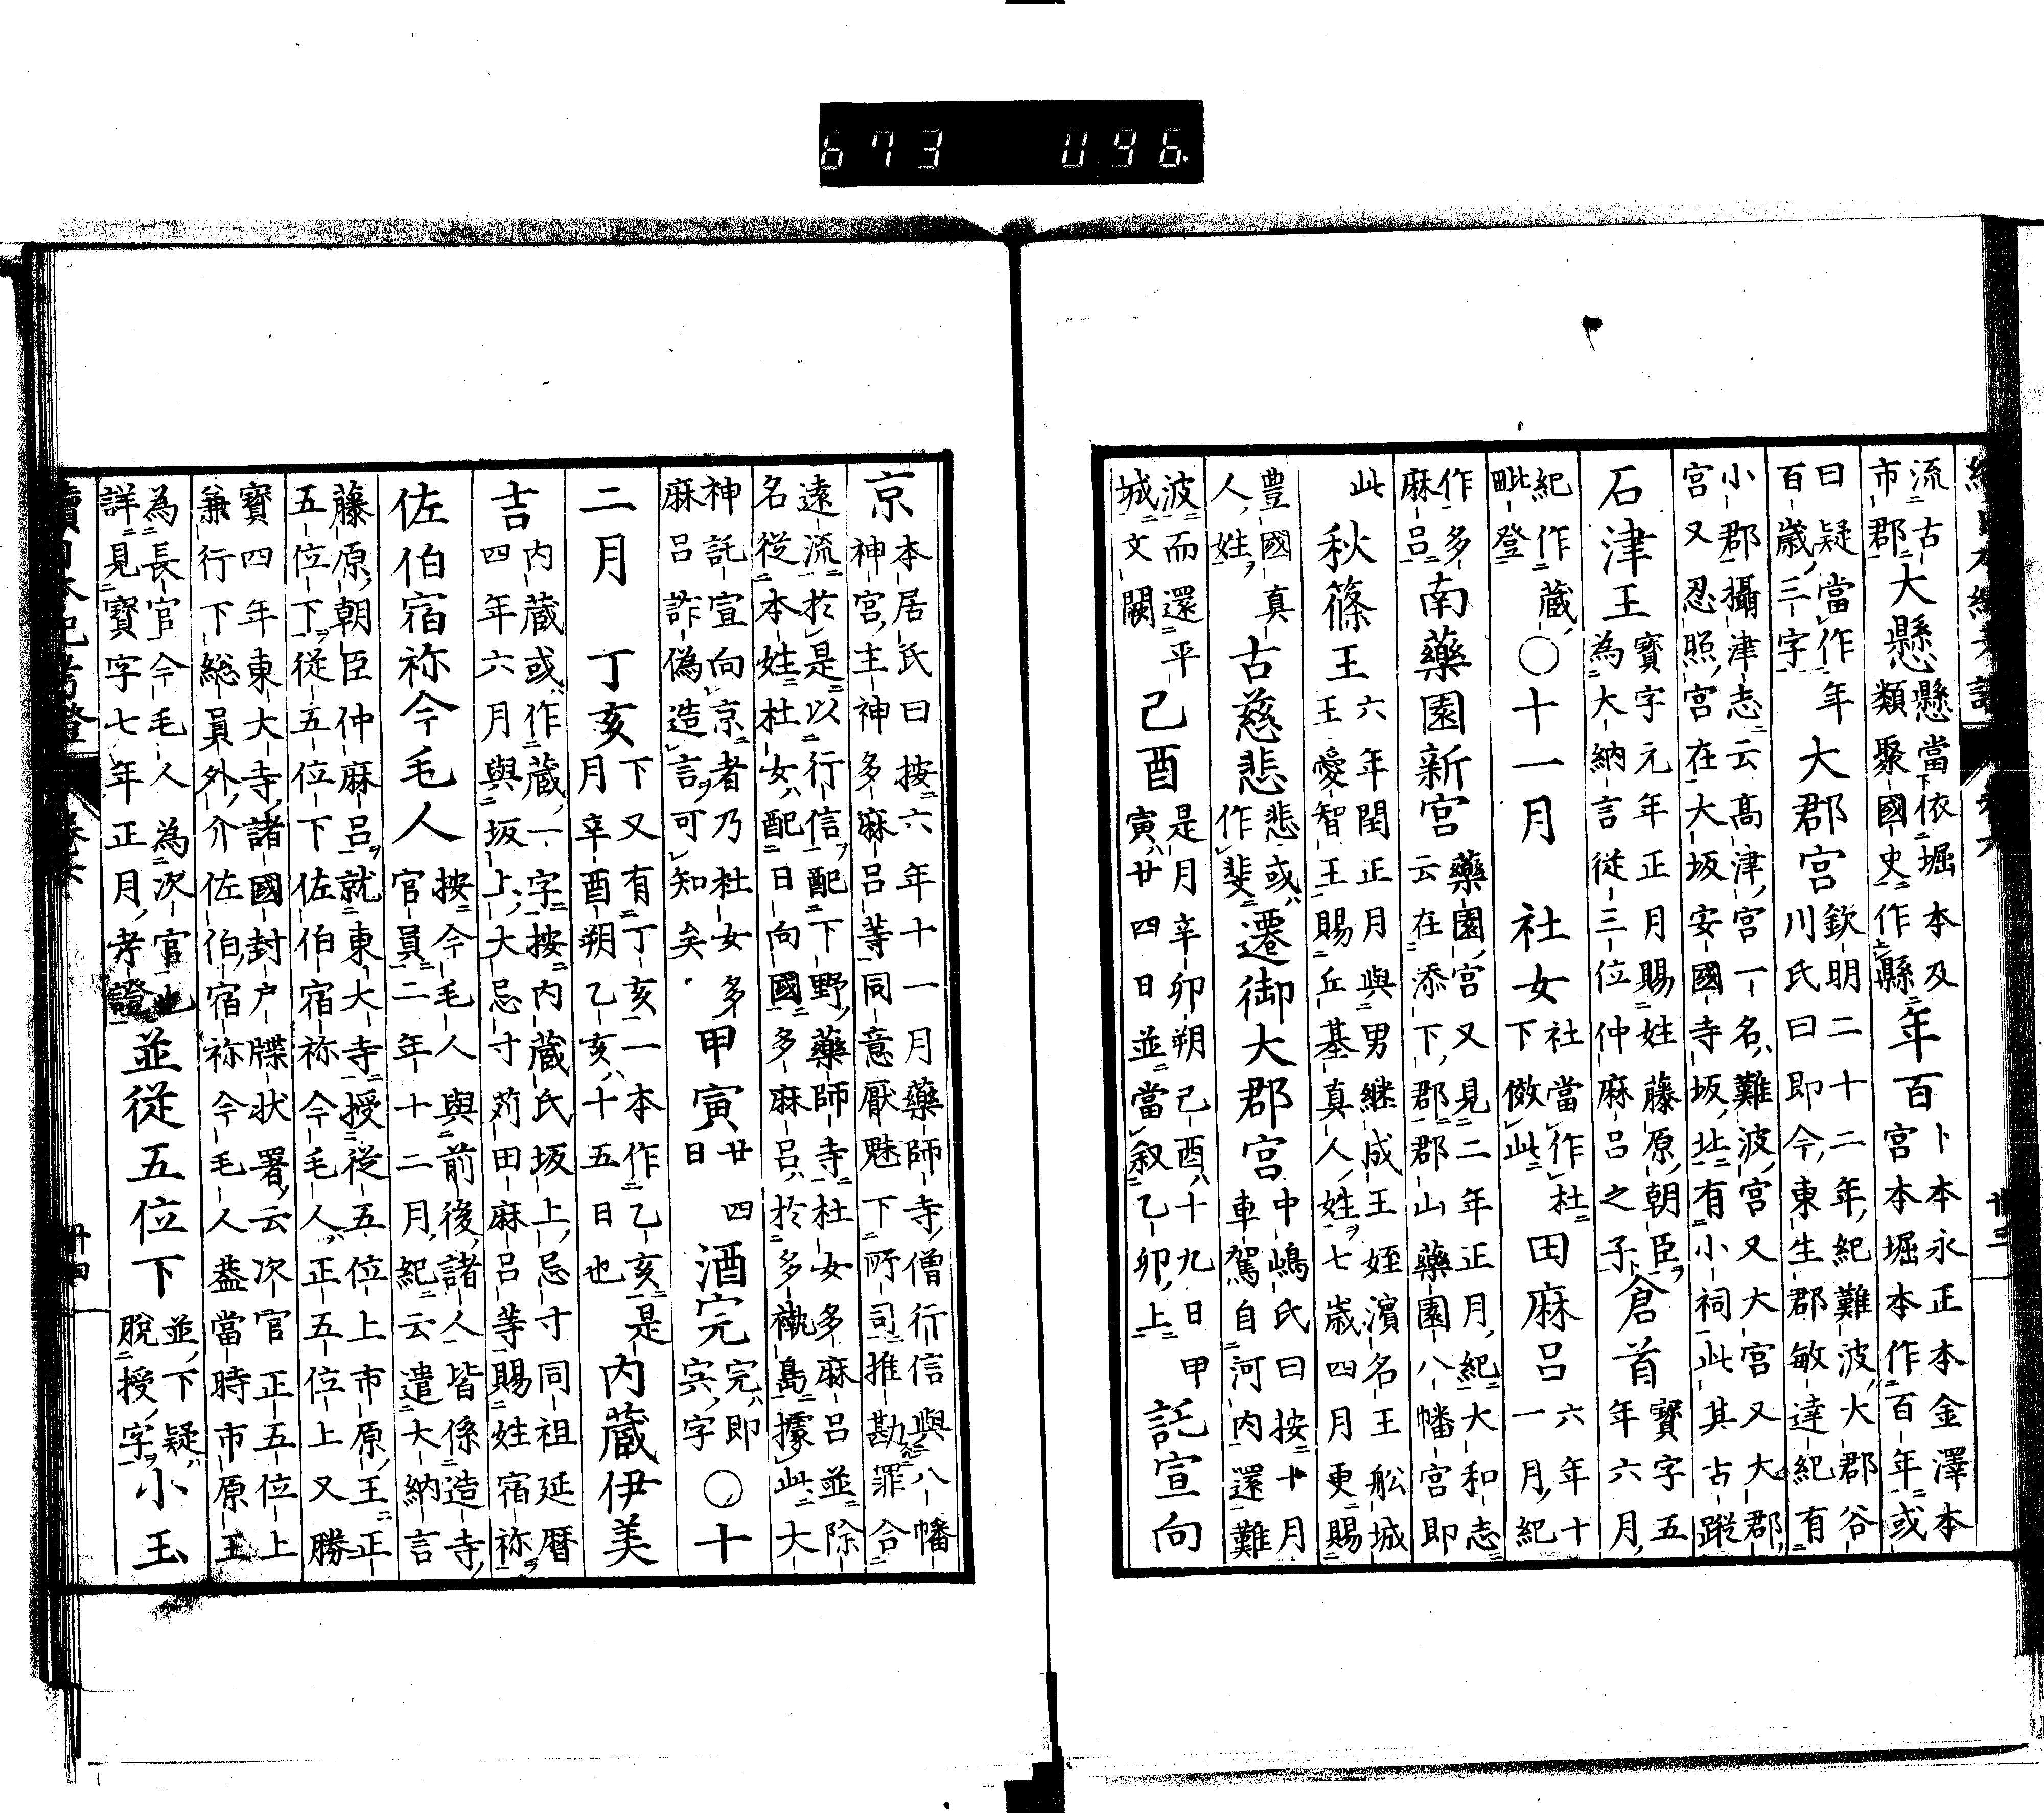 673 096
流古
市郡
大懸
懸當依堀本及
類聚國史作縣
年百
卜本永正本金澤本
宮本堀本作百年或
曰疑當作年
百歲三字
大郡宮
欽明二十二年紀難波大郡谷
川氏曰即今東生郡敏達紀有
小郡攝津志云高津宮一名難波宮又大宮又大郡
宮又忍照宮在大坂安國寺坂北有小祠此其古蹤
石津王
寶字元年正月賜姓藤原朝臣
為大納言從三位仲麻呂之子
倉首
寶字五
年六月
紀作蔵
毗登
〇十一月
社女
社當作杜
下傚此
田麻呂
六年十
一月紀
作多
麻呂
南藥園新宮
藥園宮又見二年正月紀大和志
云在添下郡郡山藥園八幡宮即
此
秋篠王
六年閏正月與男継成王姪濱名王舩城
王愛智王賜丘基真人姓七歲四月更賜
豊國真
人姓
古慈悲
悲或
作斐
遷御大郡宮
中嶋氏曰按十月
車駕自河内還難
波而還平
城文闕
己酉
是月辛卯朔己酉十九日甲
寅廿四日並當叙乙卯上
託宣向
京
本居氏曰按六年十一月藥師寺僧行信與八幡
神宮主神多麻呂等同意厭魅下所司推勘罪合
遠流於是以行信配下野藥師寺杜女多麻呂並除
名從本姓杜女配日向國多麻呂於多褹島據此大
神託宣向京者乃杜女多
麻呂詐偽造言可知矣
甲寅
廿四
日
酒完
完即
宍字
〇十
二月
丁亥
下又有丁亥一本作乙亥是
月辛酉朔乙亥十五日也
内蔵伊美
吉
内蔵或作蔵一字按内蔵氏坂上忌寸同祖延暦
四年六月與坂上大忌寸苅田麻呂等賜姓宿祢
佐伯宿祢今毛人
按今毛人與前後諸人皆係造寺
官員二年十二月紀云遣大納言
藤原朝臣仲麻呂就東大寺授從五位上市原王正
五位下從五位下佐伯宿祢今毛人正五位上又勝
寶四年東大寺諸國封户牒状署云次官正五位上
兼行下総員外介佐伯宿祢今毛人蓋當時市原王
為長官今毛人為次官也
詳見寶字七年正月考證
並從五位下
並下疑
脫授字
小玉